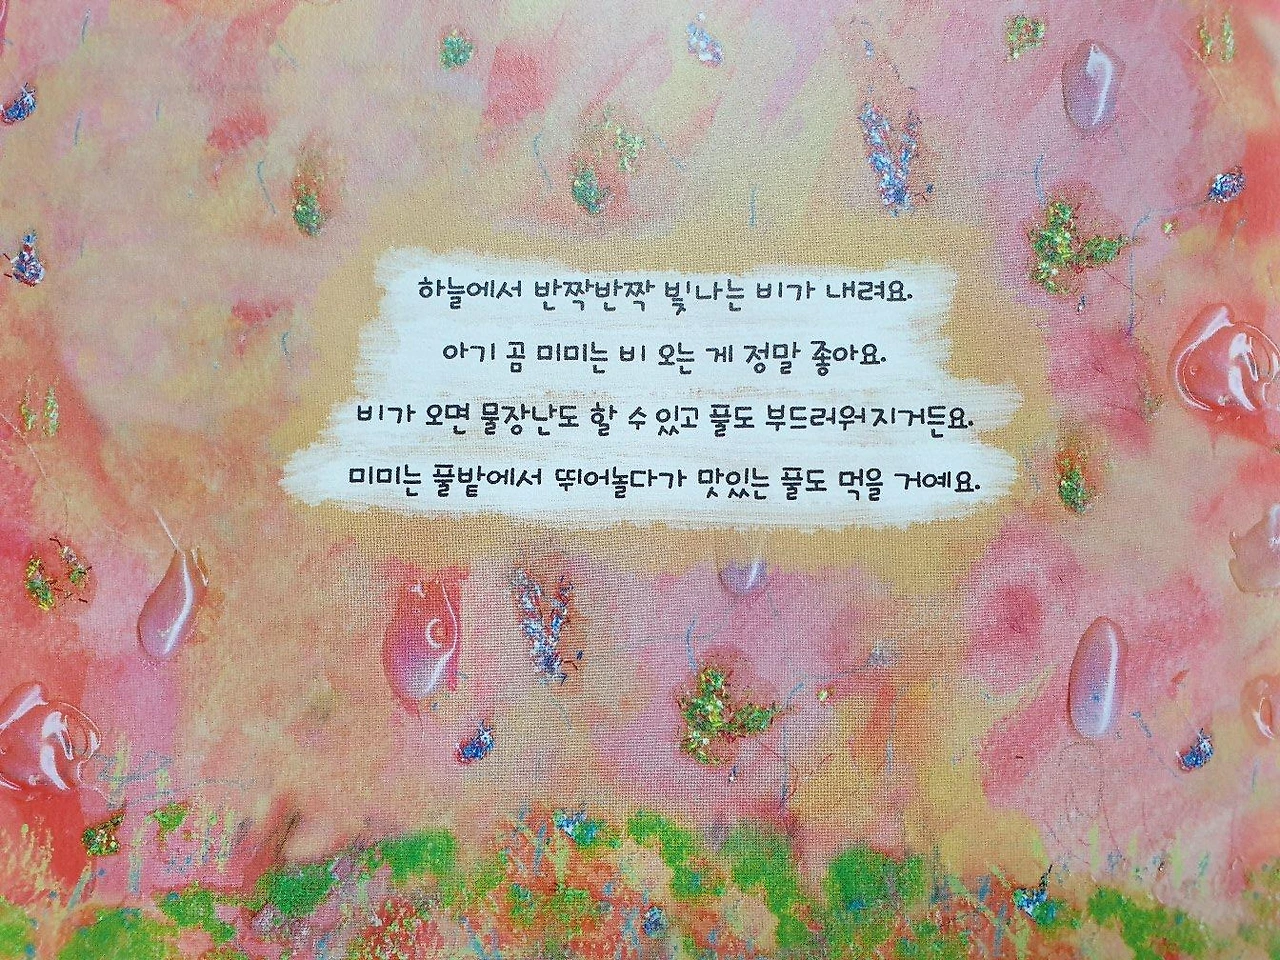 하늘에서 반짝반짝 빛나는 비가 내려요.
아기 곰 미미는 비 오는 게 정말 좋아요.
비가 오면 물장난도 할 수 있고 풀도 부드러워지거든요.
미미는 풀밭에서 뛰어놀다가 맛있는 풀도 먹을 거예요.